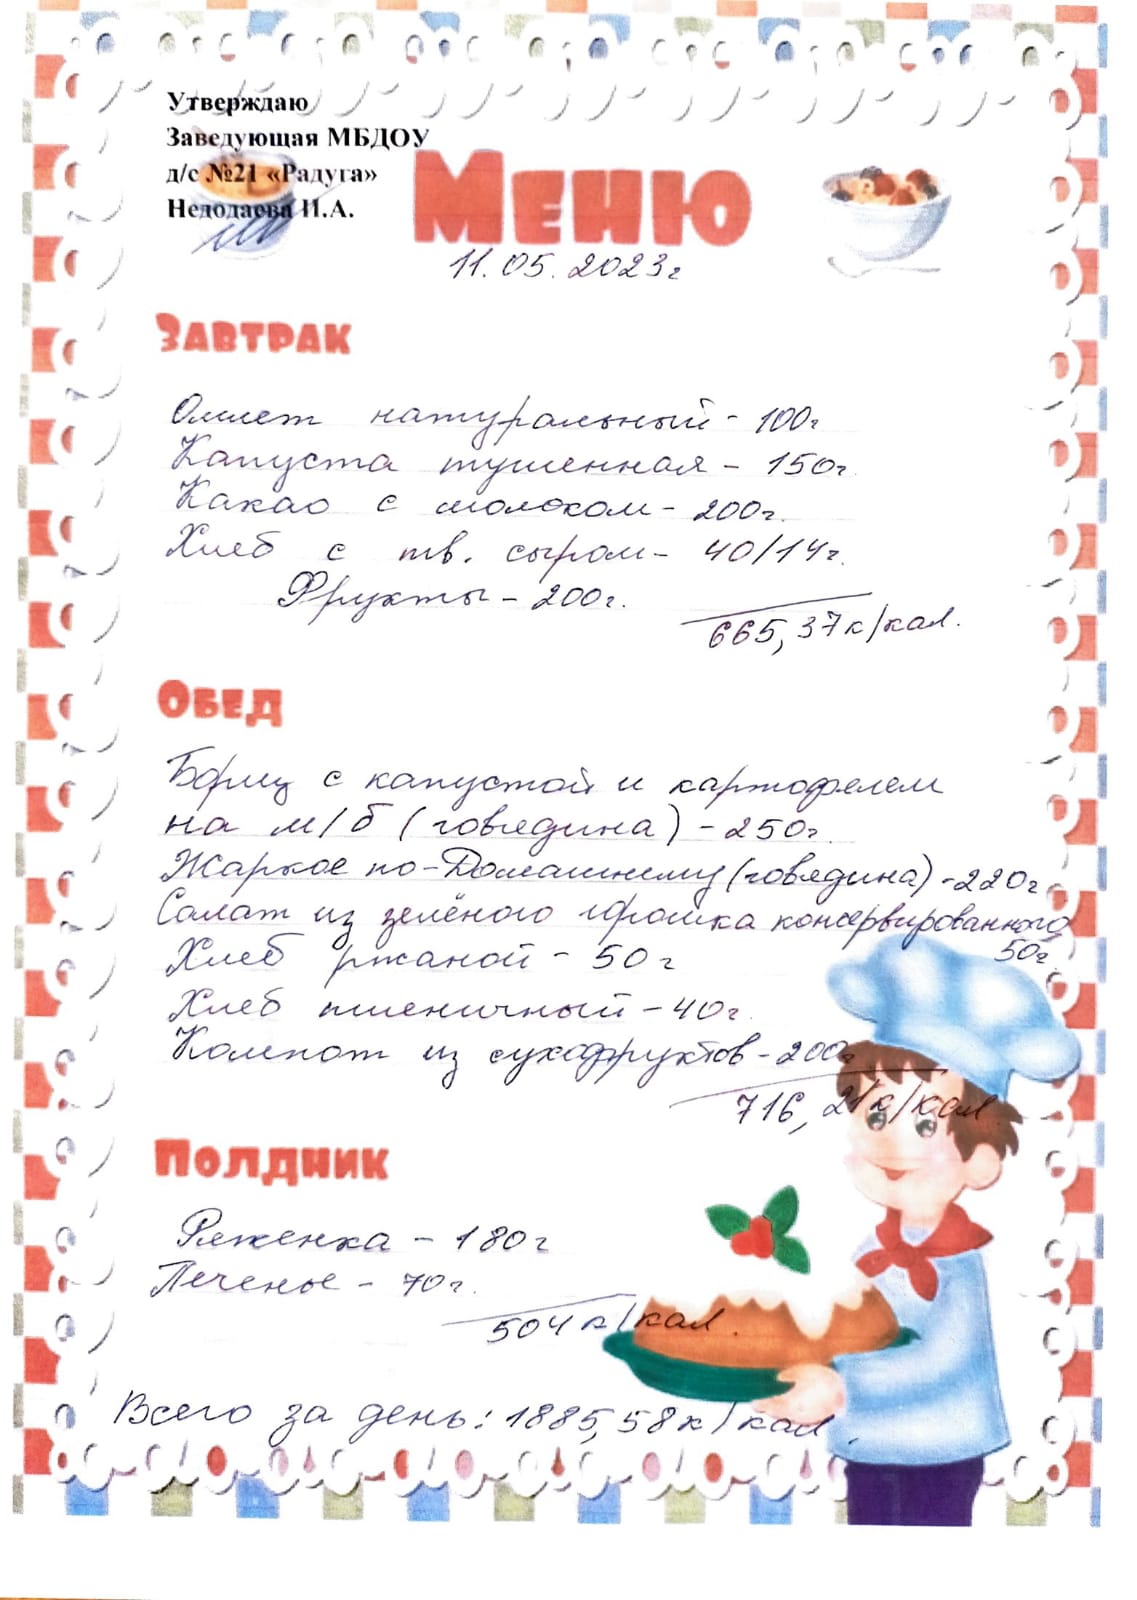 Утверждаю
Заведующая МБДОУ
д/с №21 «Радуга»
Недодаева И.А.
Меню
11.05.2023г
Завтрак
Омлет натуральный - 100г
Капуста тушенная - 150г.
Какао с молоком - 200г.
Хлеб с тв. сыром - 40/14г.
Фрукты - 200г.
665,37к/кал.
Обед
Борщ с капустой и картофелем
на м/б (говядина) - 250г.
Жаркое по-Домашнему (говядина) - 220г
Салат из зелёного горошка консервированного
50г.
Хлеб ржаной - 50г
Хлеб пшеничный - 40г.
Компот из сухофруктов - 200г
716,21к/кал.
Полдник
Ряженка - 180г
Печенье - 70г.
504к/кал.
Всего за день: 1885,58к/кал.